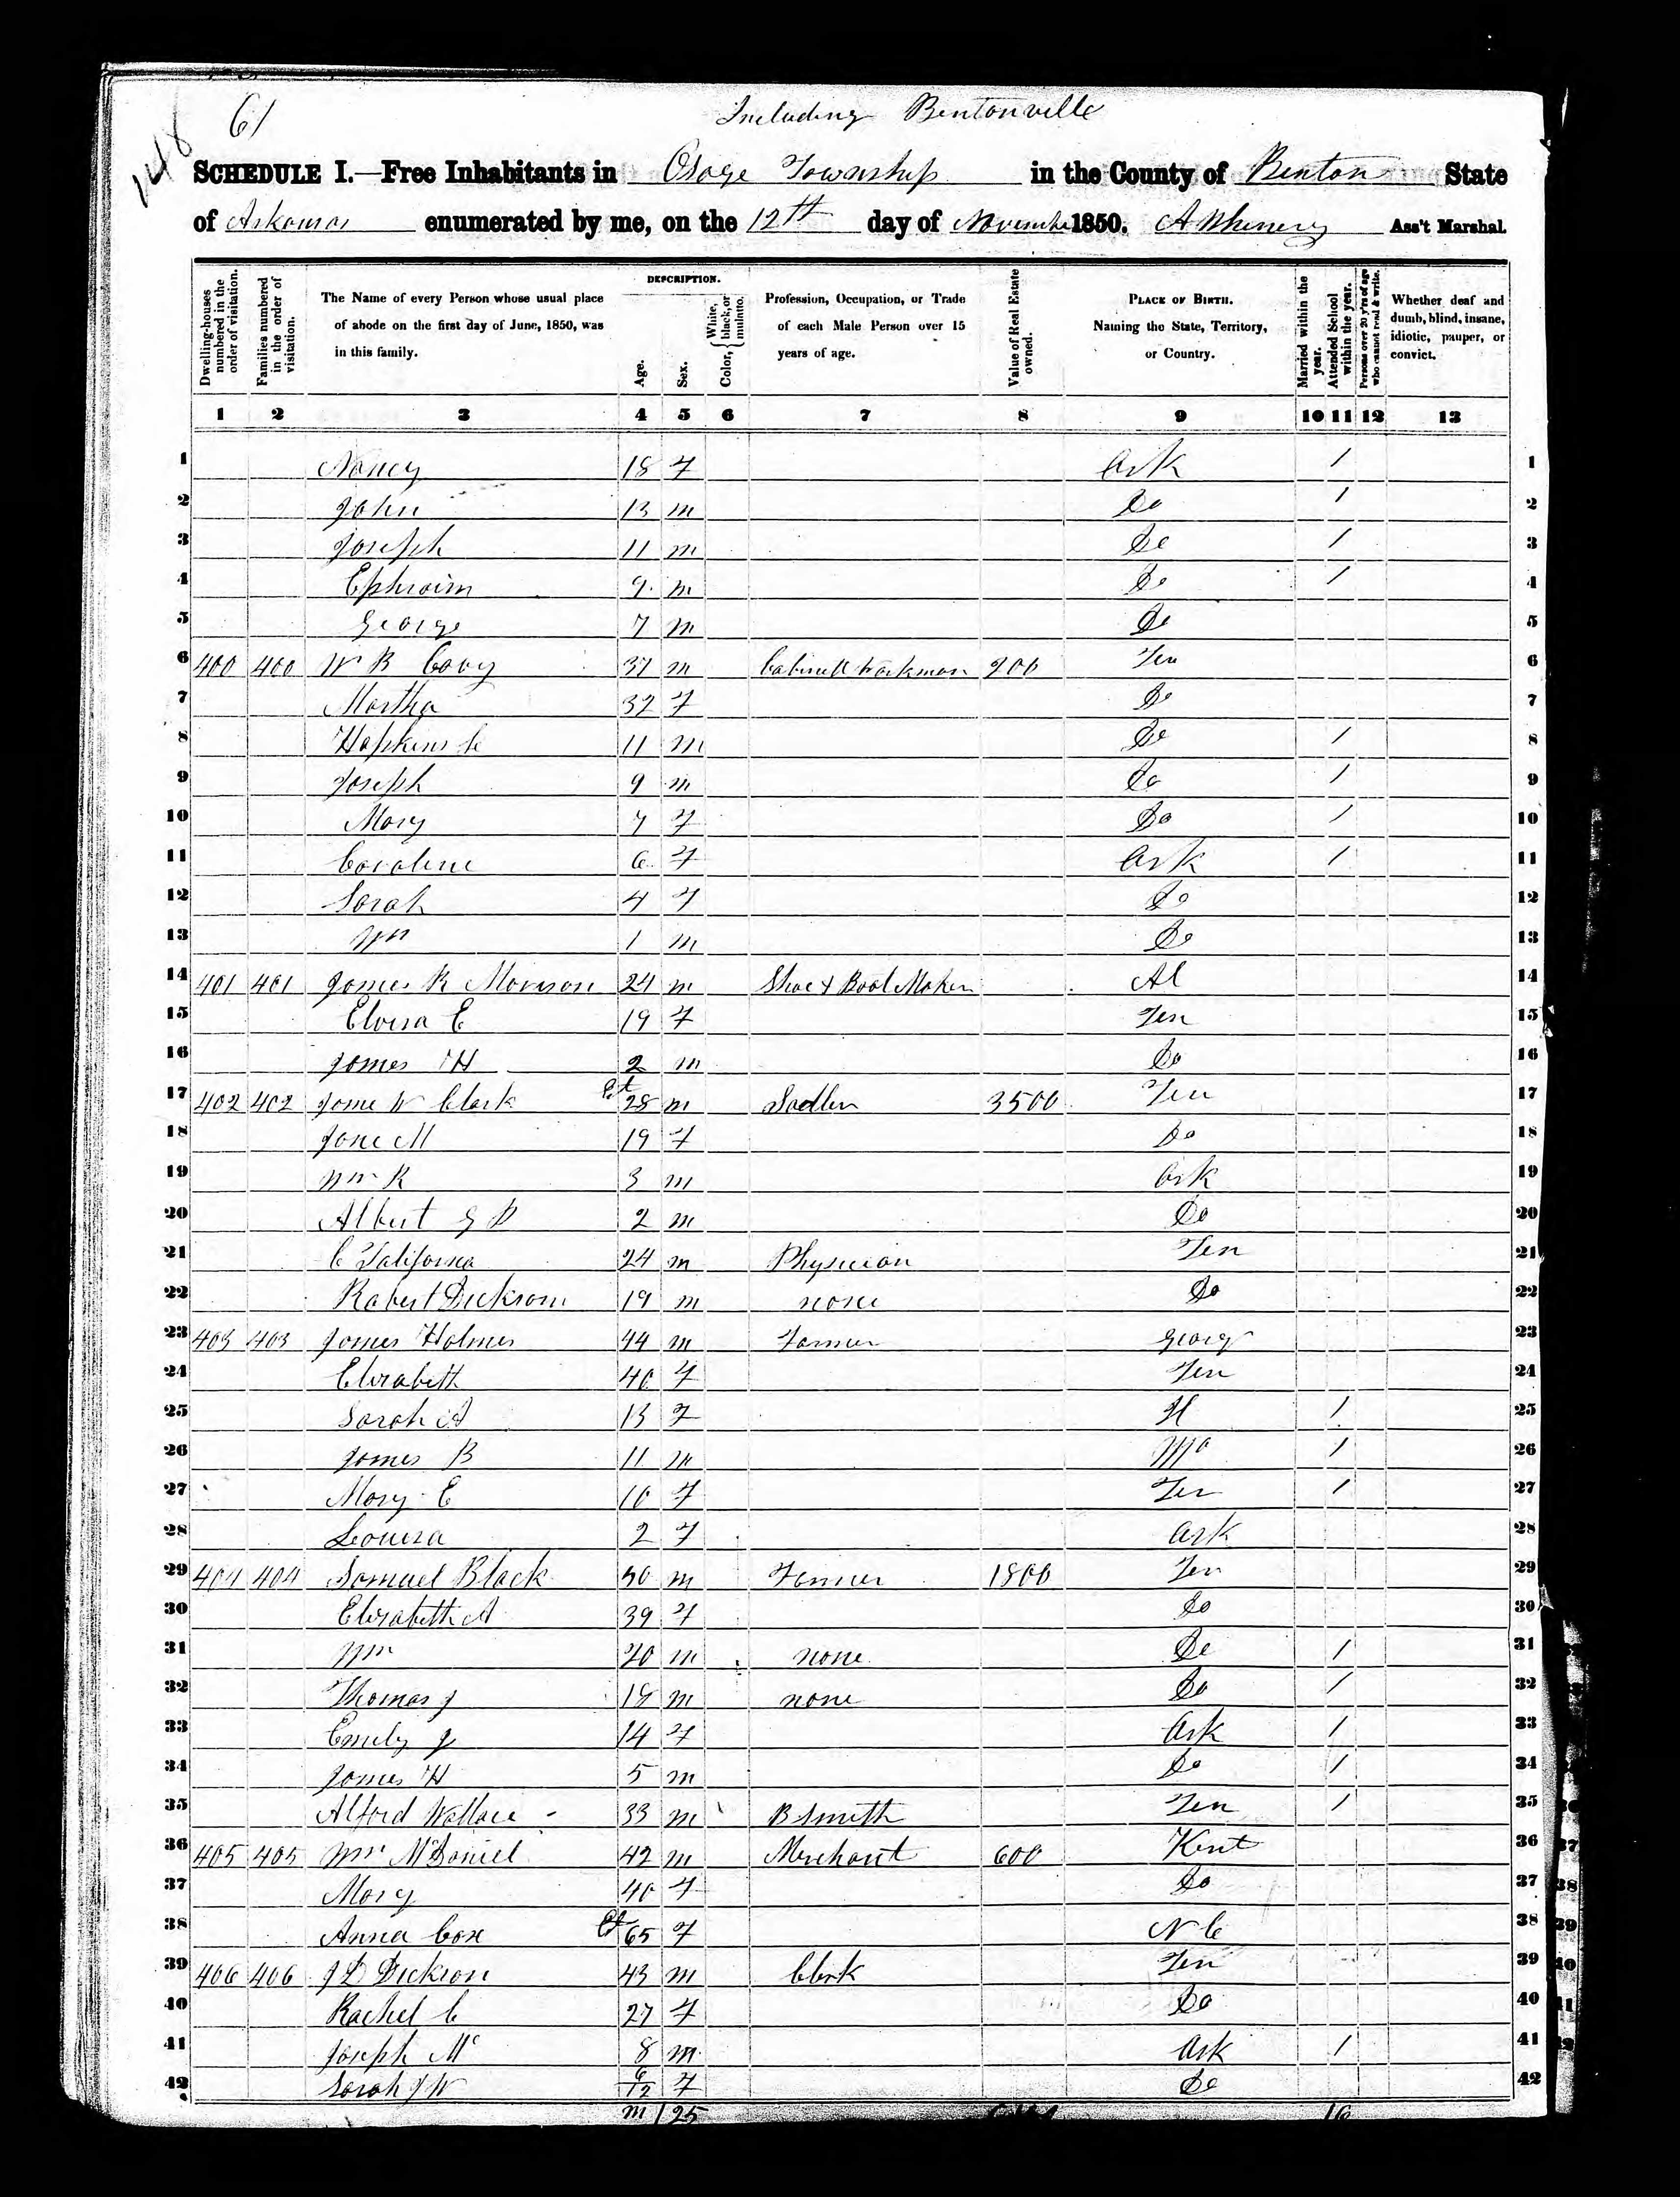 61
148
Including Bentonville
SCHEDULE I.—Free Inhabitants in Osage Township in the County of Benton State
of Arkansas enumerated by me, on the 12th day of November 1850. Ass't Marshal.
Dwelling-houses numbered in the order of visitation.
Families numbered in the order of visitation.
The Name of every Person whose usual place of abode on the first day of June, 1850, was in this family.
DESCRIPTION.
Age.
Sex.
Color, { White, black, or mulatto.
Profession, Occupation, or Trade of each Male Person over 15 years of age.
Value of Real Estate owned.
PLACE OF BIRTH. Naming the State, Territory, or Country.
Married within the year.
Attended School within the year.
Persons over 20 y'rs of age who cannot read & write.
Whether deaf and dumb, blind, insane, idiotic, pauper, or convict.
1 2 3 4 5 6 7 8 9 10 11 12 13
1 Nancy 18 F Ark / 1
2 John 13 m Do / 2
3 Joseph 11 m Do / 3
4 Ephraim 9 m Do / 4
5 George 7 m Do 5
6 400 400 W B 37 m Cabinett Workman 200 Ten 6
7 Martha 32 F Do 7
8 Hopkins C 11 m Do / 8
9 Joseph 9 m Do / 9
10 Mary 7 F Do / 10
11 Caroline 6 F Ark / 11
12 Sarah 4 F Do 12
13 Wm 1 m Do 13
14 401 401 James R Morrison 24 m Shoe & Boot Maker Al 14
15 Eloisa E 19 F Ten 15
16 James H 2 m Do 16
17 402 402 Jame W Clark 28 m Sadler 3500 Ten 17
18 Jane M 19 F Do 18
19 Wm R 3 m Ark 19
20 Albert G P 2 m Do 20
21 C 24 m Physician Ten 21
22 Robert Dickson 19 m none Do 22
23 403 403 James Holmes 44 m Farmer Georg 23
24 Elizabeth 40 F Ten 24
25 Sarah A 13 F Il / 25
26 James B 11 m Mo / 26
27 Mary E 10 F Ten / 27
28 Louisa 2 F Ark 28
29 404 404 Samuel Black 50 m Farmer 1800 Ten 29
30 Elizabeth A 39 F Do 30
31 Wm 20 m none Do / 31
32 Thomas J m none Do / 32
33 Emily J 14 F Ark / 33
34 James H 5 m Do / 34
35 Alford Wallace 33 m B Smith Ten / 35
36 405 405 Wm McDaniel 42 m Merchant 600 Kent 36
37 Mary 40 F Do 37
38 Anna Cox 65 F N C 38
39 406 406 J D Dickson 43 m Clerk Ten 39
40 Rachel C 27 F Do 40
41 Joseph Mc 8 m Ark / 41
42 Sarah J W 6/12 F Do 42
m / 25 16